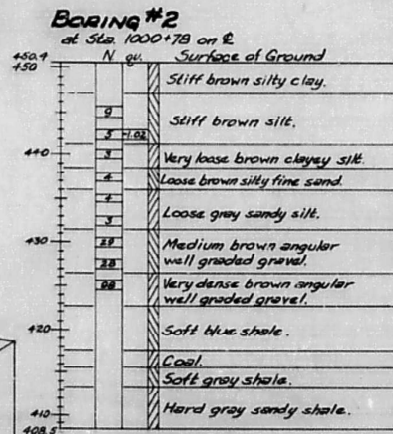 BORING #2
at Sta. 1000+78 on ℄
N qu. Surface of Ground
450.4
450
Stiff brown silty clay.
9
Stiff brown silt.
5 -1.02
440
3 Very loose brown clayey silt.
4 Loose brown silty fine sand.
4
Loose gray sandy silt.
3
430
29 Medium brown angular
well graded gravel.
28
98 Very dense brown angular
well graded gravel.
420
Soft blue shale.
Coal.
Soft gray shale.
410
Hard gray sandy shale.
408.5